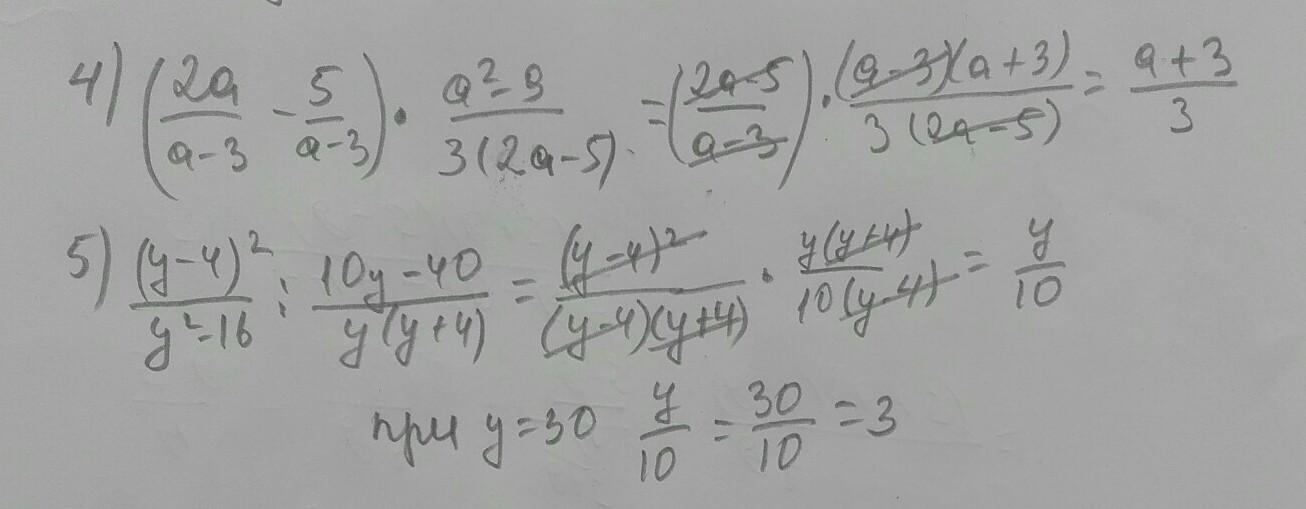 4) (2a/(a-3) - 5/(a-3)) · (a²-9)/(3(2a-5)) = ((2a-5)/(a-3)) · ((a-3)(a+3))/(3(2a-5)) = (a+3)/3
5) (y-4)²/(y²-16) : (10y-40)/(y(y+4)) = (y-4)²/((y-4)(y+4)) · y(y+4)/(10(y-4)) = y/10
при y=30 y/10 = 30/10 = 3